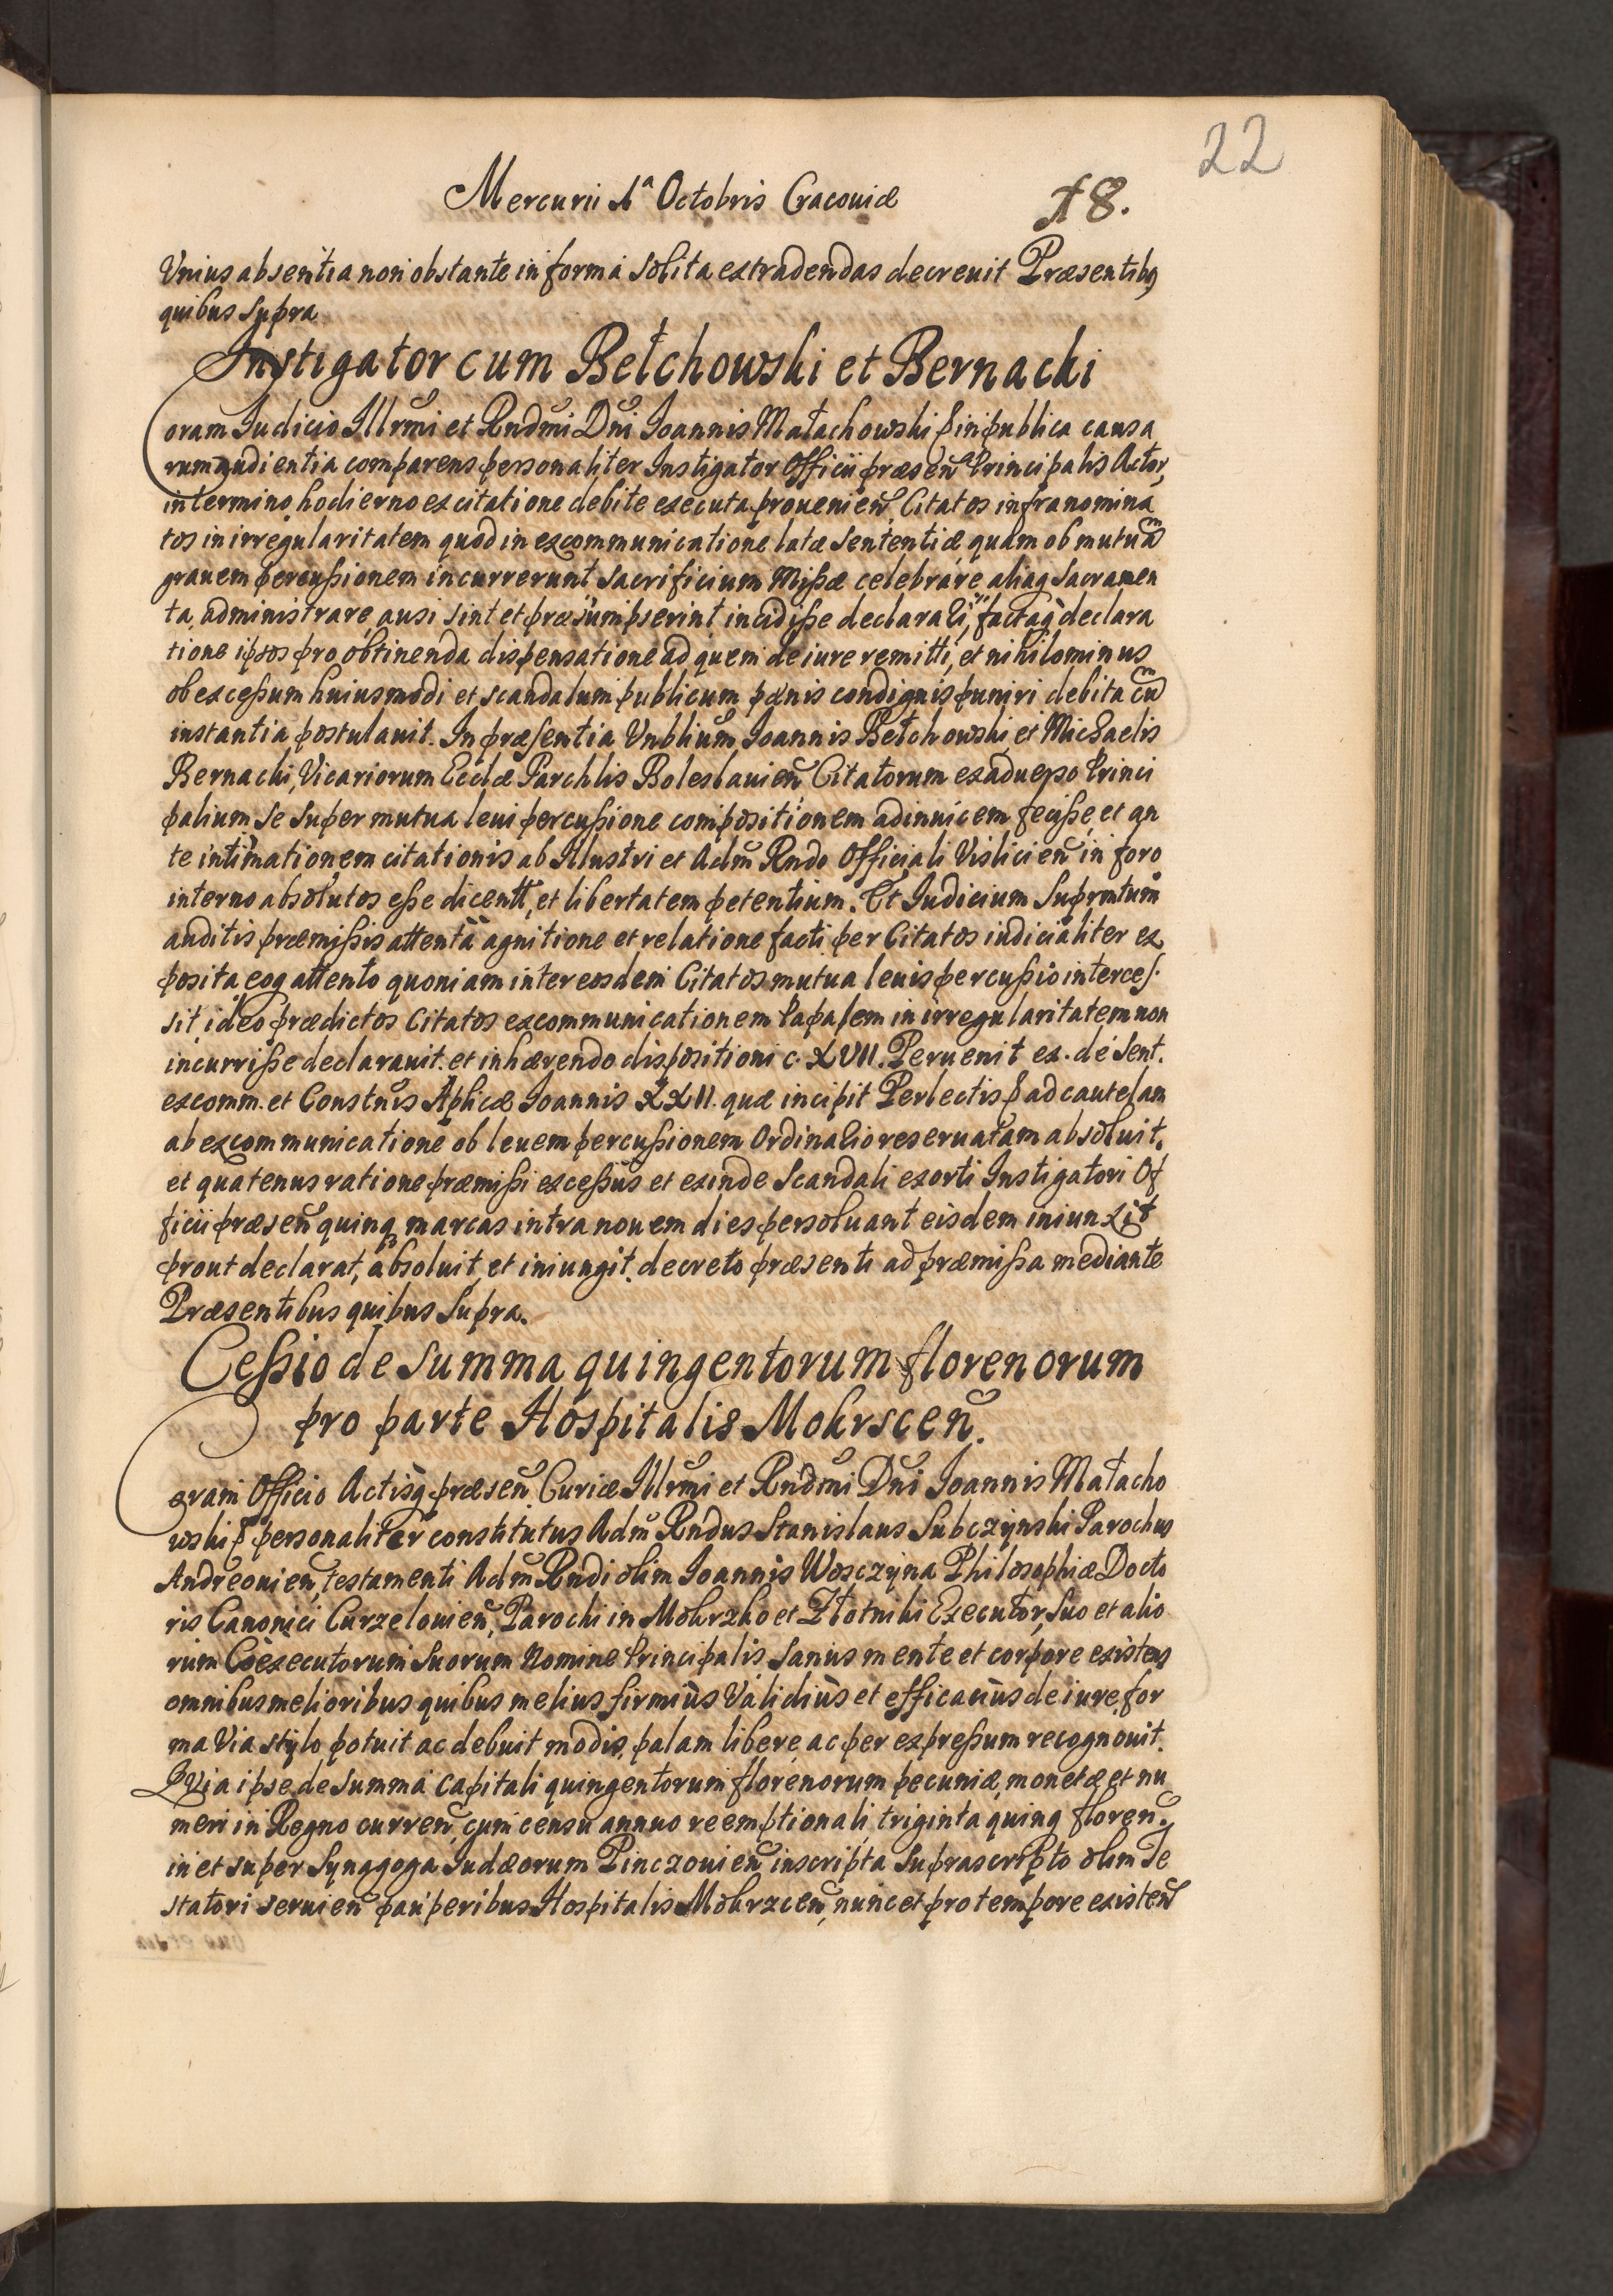 22
Mercurii 1ª Octobris Cracouiæ
18.
Vnius absentia non obstante in forma solita extradendas decreuit Præsentibq
quibus supra
Instigator cum Bełchowski et Bernacki
Coram Iudicio Illrmi et Rndmi Dni Ioannis Małachowski ꝑ in publica causa
rum audientia comparens personaliter Instigator Officii præsen Principalis Actor,
in termino hodierno ex citatione debite executa prouenien, Citatos infranomina
tos in irregularitatem quod in excommunicatione latæ sententiæ quam ob mutuam
grauem percußionem incurrerunt sacrificium Mißæ celebrare aliaq Sacramen
ta administrare ausi sint et præsumpserint incidiße declarari, factaq declara
tione ipsos pro obtinenda dispensatione ad quem de iure remitti, et nihilominus
ob exceßum huiusmodi et scandalum publicum pænis condignis puniri debita cum
instantia postulauit. In præsentia Vnblium Ioannis Bełchowski et Michaelis
Bernacki, Vicariorum Ecclæ Parchlis Boleslauien Citatorum ex aduerso Princi
palium se super mutua leui percußione compositionem adinuicem feciße, et an
te intimationem citationis ab Illustri et Adm Rndo Officiali Vislicien in foro
interno absolutos eße dicentt, et libertatem petentium. Et Iudicium suprmtum
auditis præmißis attenta agnitione et relatione facti per Citatos iudicialiter ex
posita eoq attento quoniam inter eosdem Citatos mutua leuis percußio interces
sit, ideo prædictos Citatos excommunicationem Papalem in irregularitatem non
incurriße declarauit. et inhærendo dispositioni c. XVII. Peruenit ex. de Sent.
excomm. et Constnis Aplicæ Ioannis XXII. quæ incipit Perlectis ꝑ ad cautelam
ab excommunicatione ob leuem percußionem Ordinario reseruatam absoluit,
et quatenus ratione præmißi exceßus et exinde scandali exorti Instigatori Of
ficii præsen quinq marcas intra nouem dies persoluant eisdem iniunxit
prout declarat, absoluit, et iniungit. decreto præsenti ad præmißa mediante
Præsentibus quibus supra.
Ceßio de summa quingentorum florenorum
pro parte Hospitalis Mokrscen.
Coram Officio Actisq præsen Curiæ Illrmi et Rndmi Dni Ioannis Małacho
wski ꝑ personaliter constitutus Adm Rndus Stanislaus Subczynski Parochus
Andreouien, testamenti Adm Rndi olim Ioannis Wosczyna Philosophiæ Docto
ris Canonici Curzelouien, Parochi in Mokrzko et Złotniki Executor, suo et alio
rum Coexecutorum suorum Nomine Principalis sanus mente et corpore existens
omnibus melioribus quibus melius firmius validius et efficacius de iure for
ma via stylo potuit ac debuit modis, palam libere ac per expreßum recognouit.
Quia ipse de summa capitali quingentorum florenorum pecuniæ, monetæ et nu
meri in Regno curren, cum censu annuo reemptionali, triginta quinq floren.
in et super Synagoga Iudæorum Pinczouien inscripta suprascripto olim Te
statori seruien pauperibus Hospitalis Mokrzcen, nunc et pro tempore existen